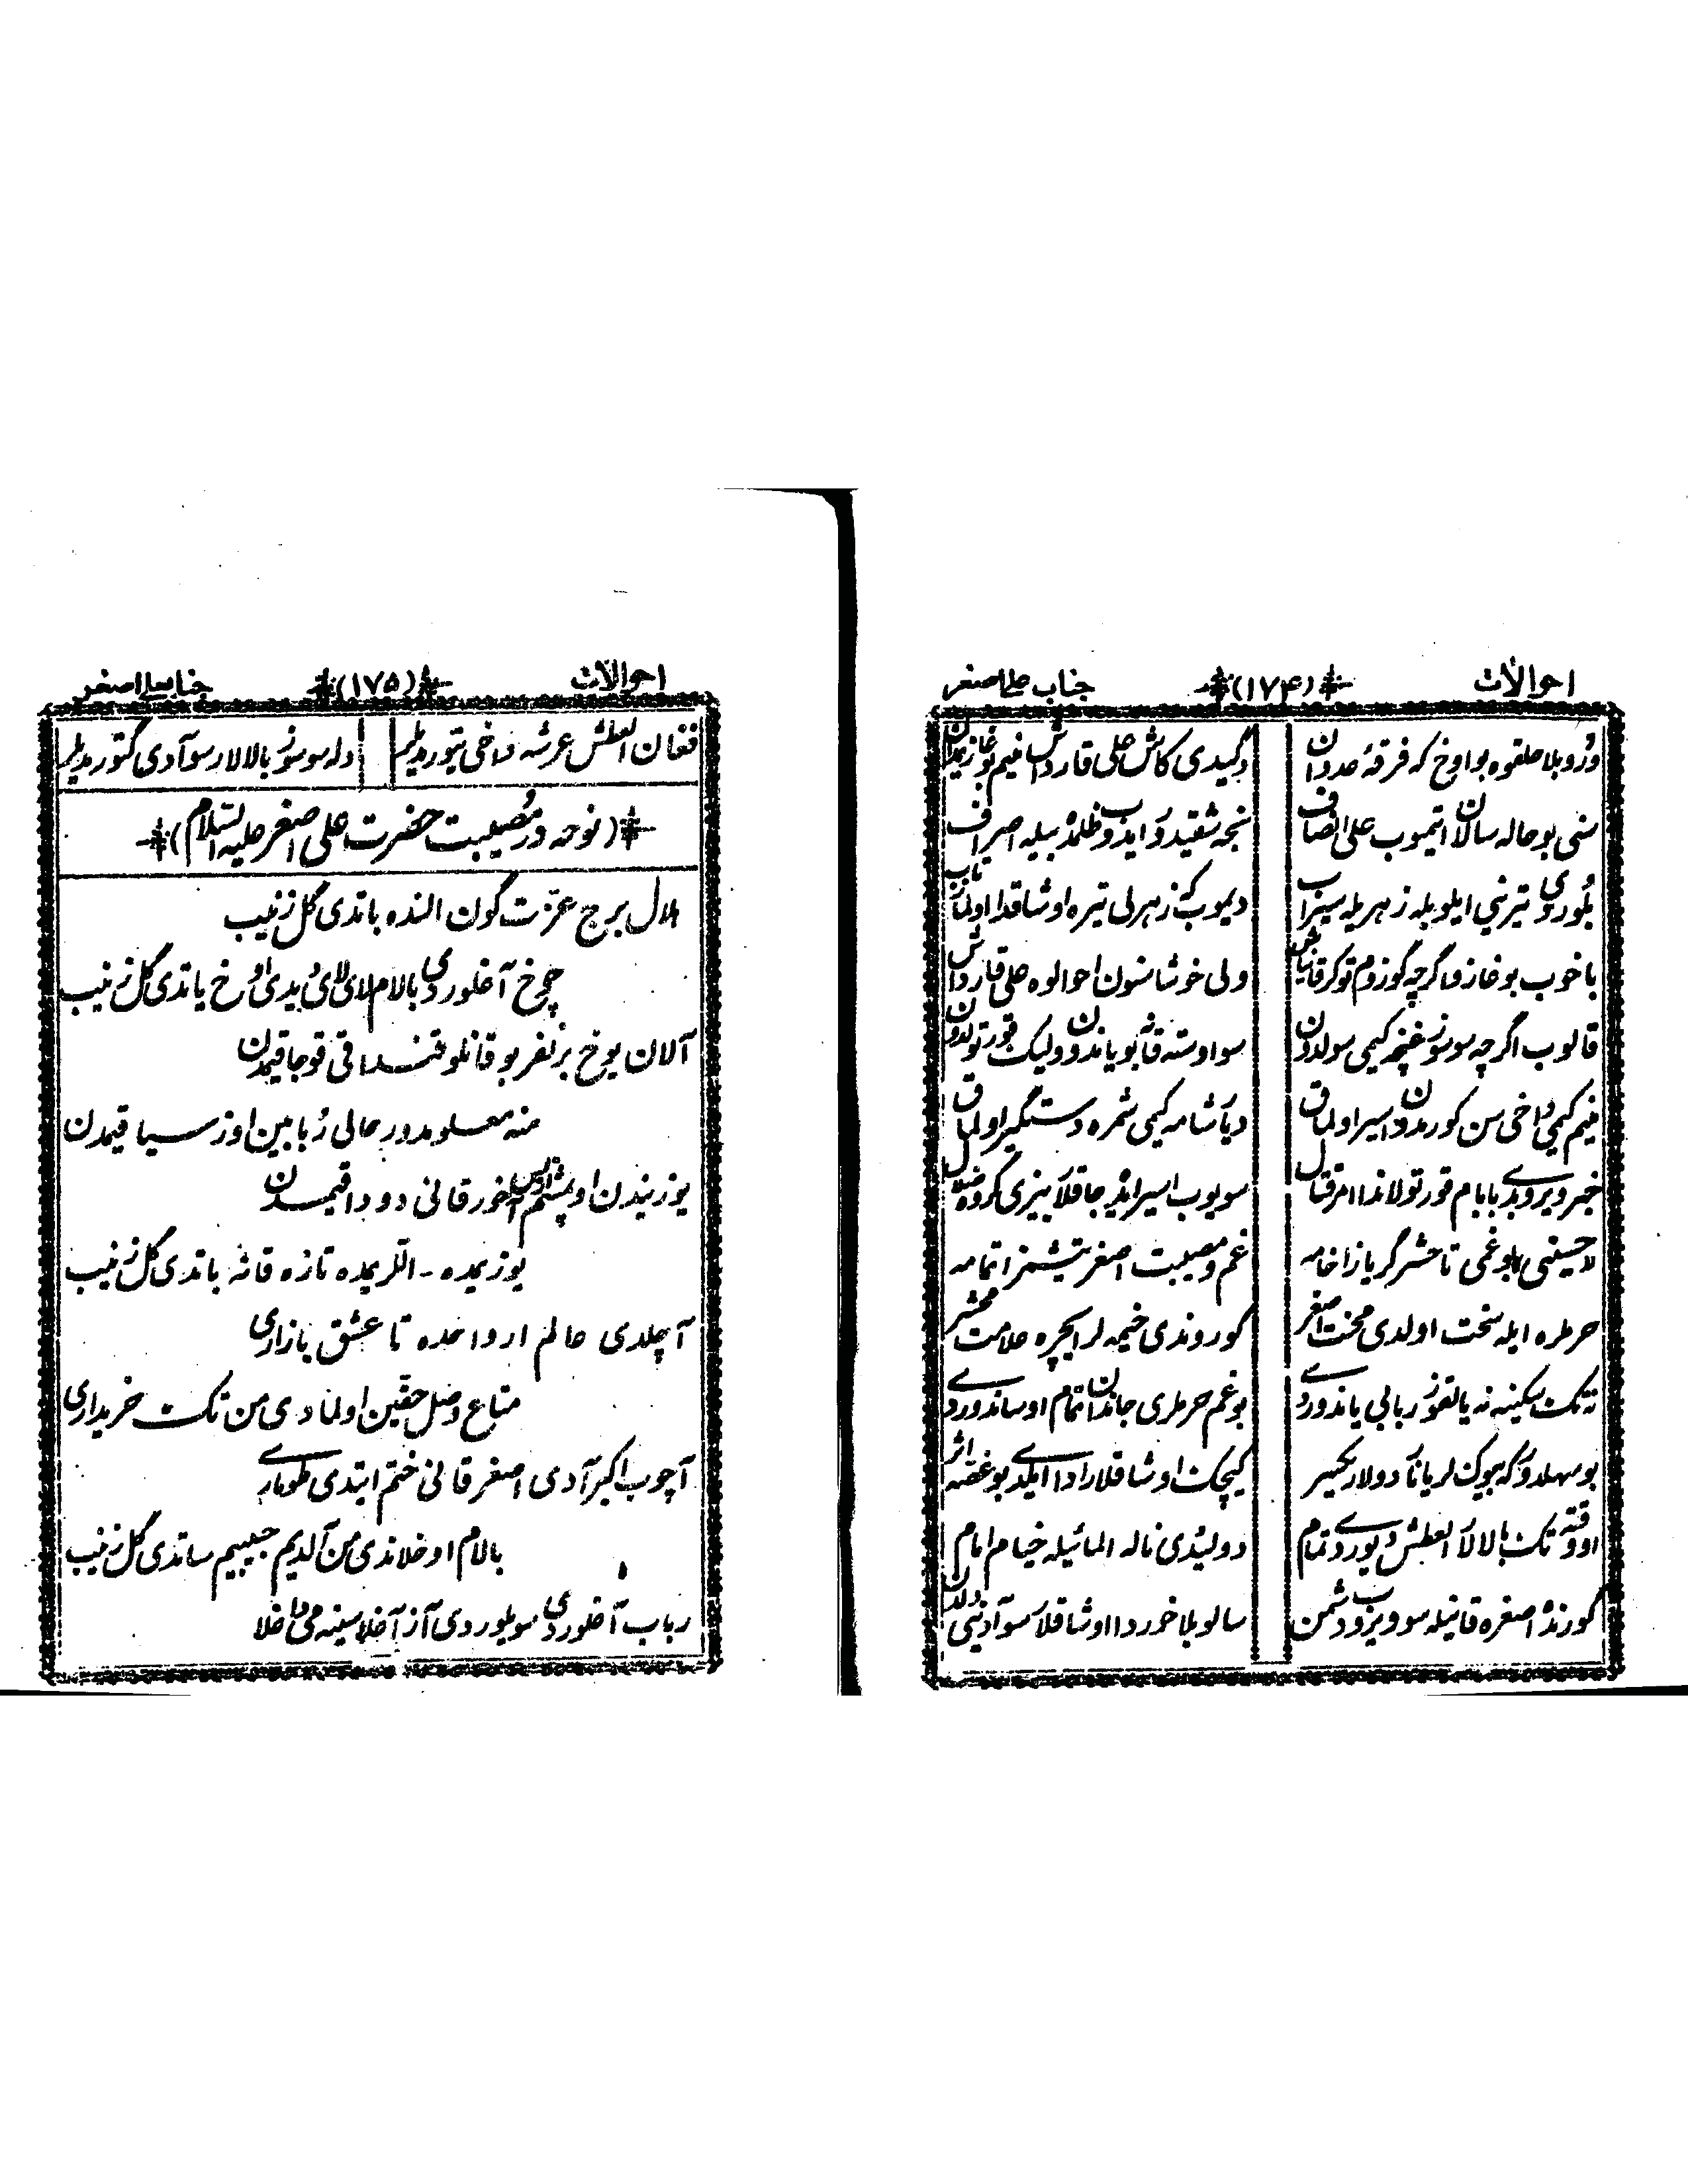 احوالات (۱۷۴) جناب علی اصغر
وُروبلا حلقوه بو اوخ که فرقهٔ عدوان دگیدی کاش علی قارداش منیم بوغازیمدان
سنی بو حاله سالان ایتمیوب علی انصاف نجه شقیدور ایدوب ظلمده بیله اصراف
بُلوردی تیرینی ایلوبله زهریله سیراب دیموب که زهرلی تیره اوشاقدا اولماز تاب
باخوب بوغازوا گرچه گوزوم توکر قان یاش ولی خوشا سنون احوالوه علی قارداش
قالوب اگرچه سوسوز غنچه کیمی سولدون سو اوسته قانه بویاندون ولیک قورتولدون
منیم کیمی داخی سن گورمدون اسیر اولماق دیار شامه کیمی شمره دستگیر اولماق
خبر ویروبدی بابام قورتولاندا امر قتال سویوب اسیر ایدهجاقلار بیزی گروه ضلال
لاحسینی بو غمی تا حشر گر یازا خامه غم و مصیبت اصغر یتیشمز اتمامه
حرملره ایله سخت اولدی محنت اصغر گوروندی خیمه لر ایچره علامت محشر
نه تک سکینه نه یالقوز ربابی یاندوردی بو غم حرملری جاندان تمام اوساندوردی
بو سهلدور که بیوک لر یانار دولار یکسر کیچک اوشاقلارادا ایلدی بو غصه اثر
او وقته تک بالالار العطش دیوردی تمام دولیدی ناله الماسیله خیام امام
گورنده اصغره قانیله سو ویروب دشمن سالوبلا خوردا اوشاقلار سو آدینی دلدن
احوالات (۱۷۵) جناب علی اصغر
فغان العطش عرشه داخی یتورمدیلر دله سوسوز بالالار سو آدی گتورمدیلر
(نوحه در مصیبت حضرت علی اصغر علیه السلام)
هلال برج عزت گون النده باتدی گل زینب
چوخ آغلوردی بالام لای لای دیدیم اوخ یاتدی گل زینب
آلان یوخ بر نفر بو قانلو قنداقی قوجاقیمدن
منه معلومدور حالی رُبابین اوز سیاقیمدن
یوزیندن اوپمشم آخور قانی دوداقیمدن
یوزیمده - اللریمده تازه قانه باتدی گل زینب
آچلدی عالم ارواحده تا عشق بازاری
متاع وصل حقین اولمادی من تک خریداری
آچوب اکبر آدی اصغر قانی ختم ایتدی طوماری
بالام اوخلاندی من آلدیم حبیبیم ساتدی گل زینب
رباب آغلوردی سویلوردی آز آغلا سینه می داغلا